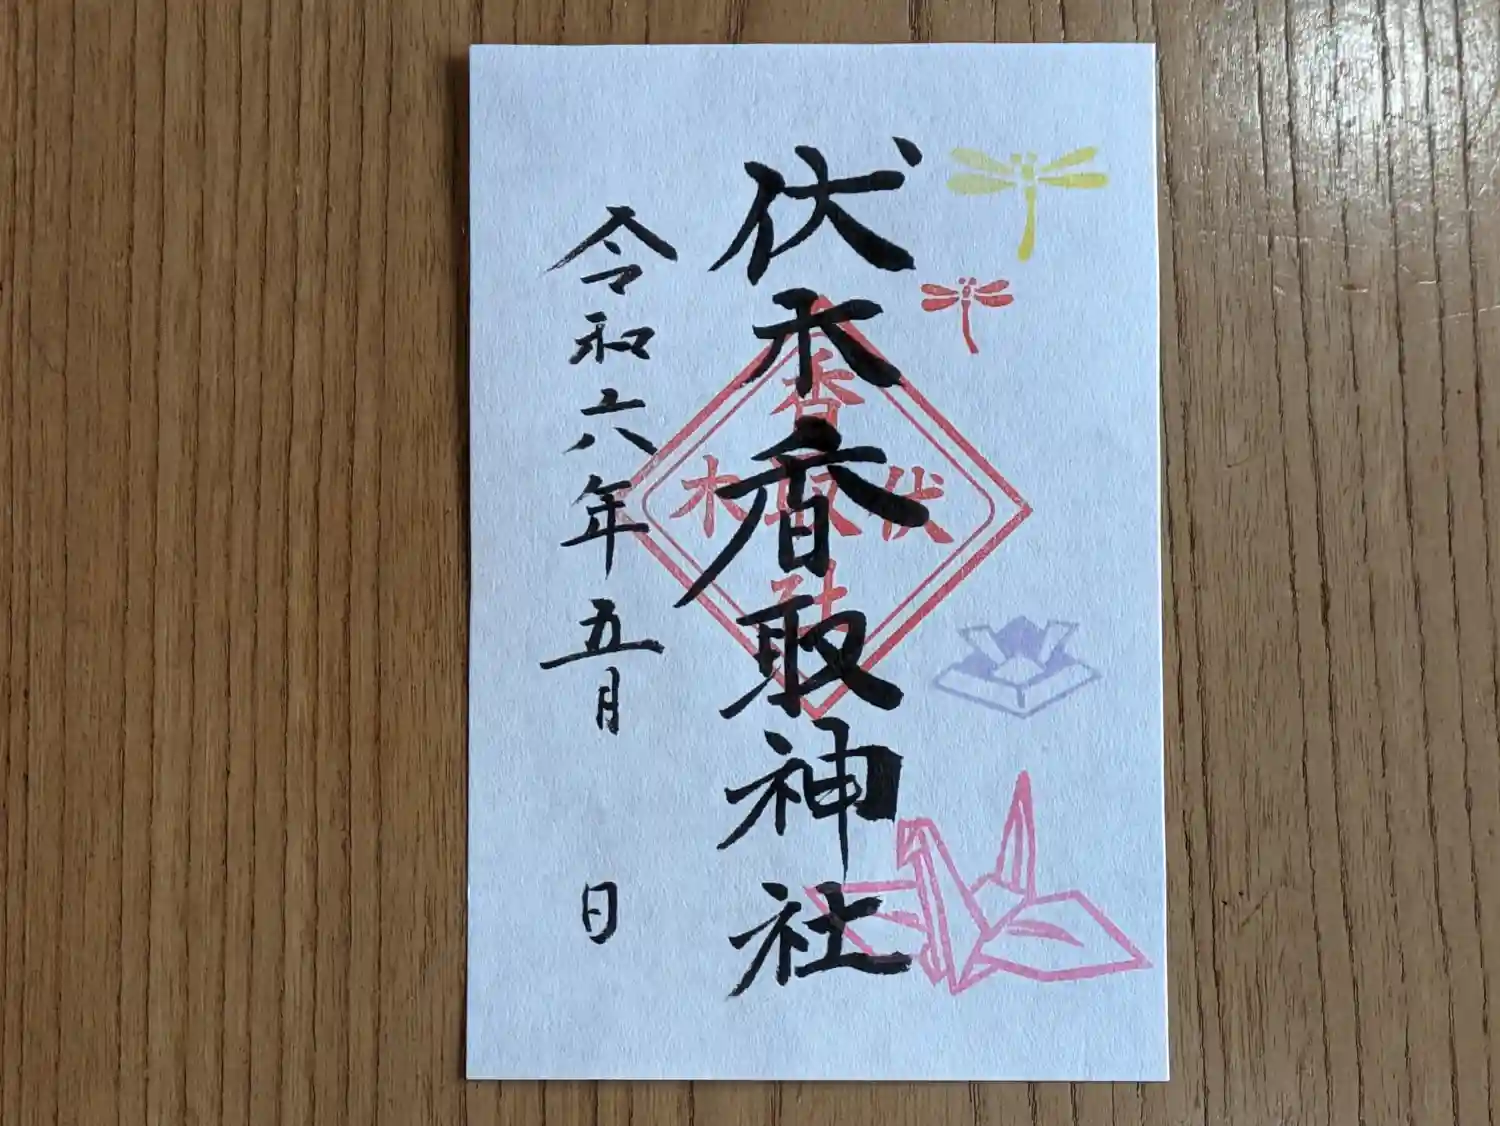 伏木香取神社
香
木取伏
社
令和六年五月 日